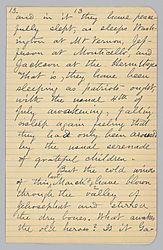 13. 13
and in it they have peace-
fully slept, as sleeps Wash-
ington at Mt Vernon, Jef-
ferson at Monticello, and
Jackson at the Hermitage.
That is, they have been
sleeping as patriots ought,
with the usual 4th of
July awakening, falling
asleep again feeling that
they had only been
by the usual serenade
of grateful children.
But the cold winds
of this, have blown
through the valley of
Jehosaphat and stirred
the dry bones. What awakes
the old heroes? Is it Ga-